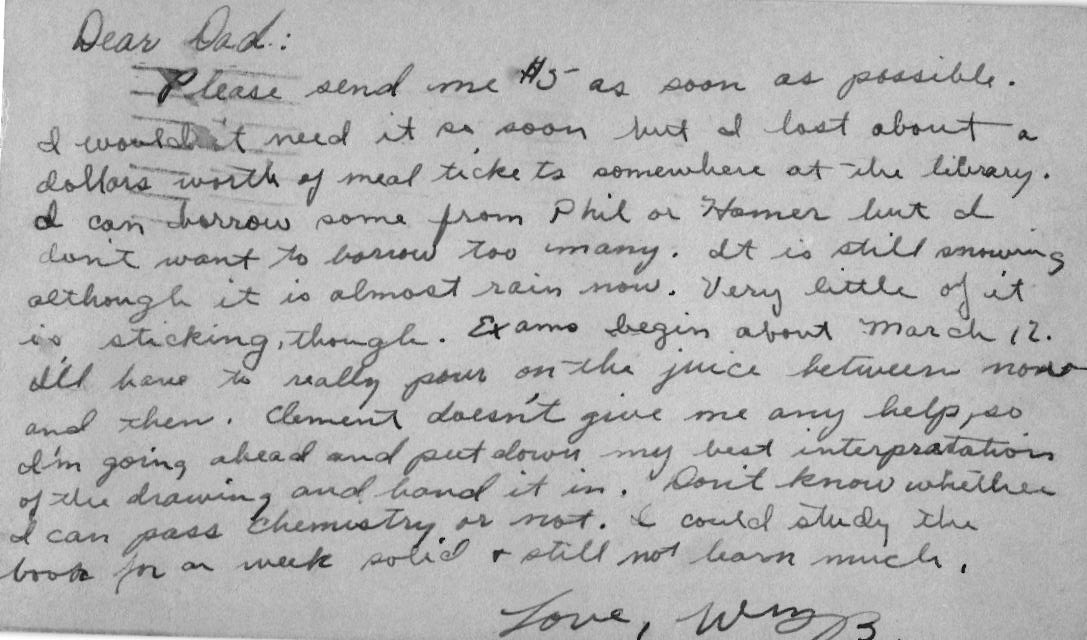 Dear Dad:
Please send me $5 as soon as possible.
I wouldn't need it so soon but I lost about a
dollars worth of meal tickets somewhere at the library.
I can borrow some from Phil or Homer but I
don't want to borrow too many. It is still snowing
although it is almost rain now. Very little of it
is sticking, though. Exams begin about March 12.
I'll have to really pour on the juice between now
and then. Clement doesn't give me any help, so
I'm going ahead and put down my best interpratation
of the drawing and hand it in. Don't know whether
I can pass chemistry or not. I could study the
book for a week solid + still not learn much.
Love, Wm B.